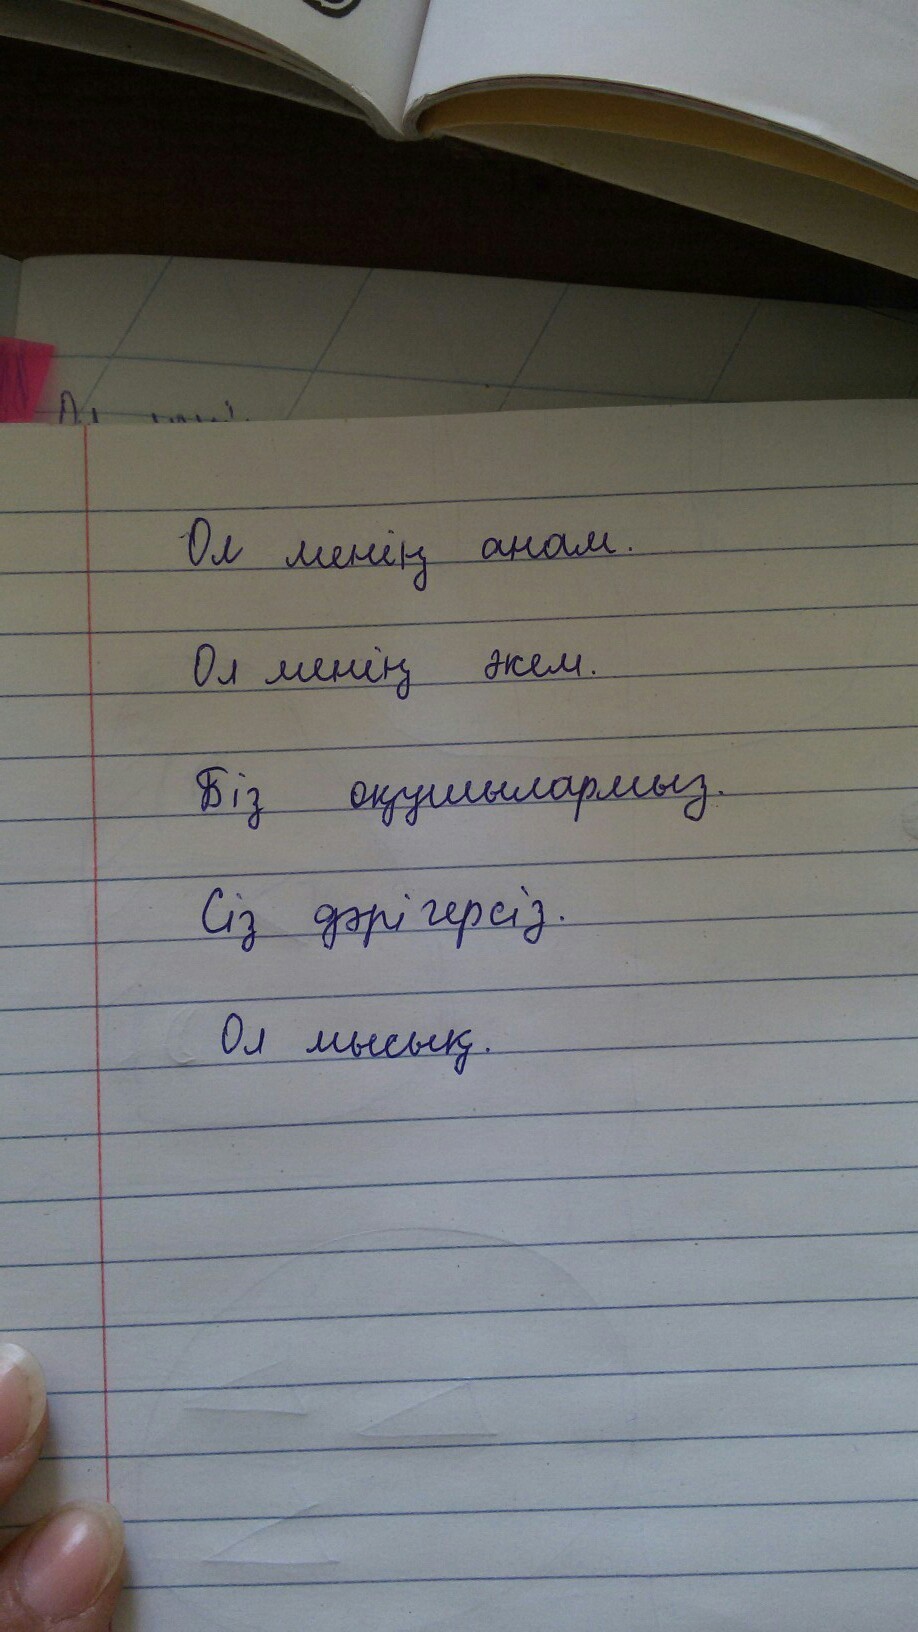 Ол менің анам.
Ол менің әкем.
Біз оқушылармыз.
Сіз дәрігерсіз.
Ол мысық.